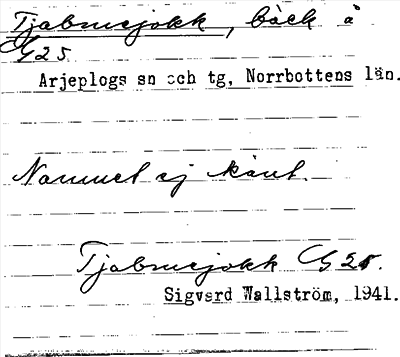 Tjabmejokk, bäck å
G25
Arjeplogs sn och tg, Norrbottens län.
Namnet ej känt.
Tjabmejokk G25.
Sigverd Wallström, 1941.